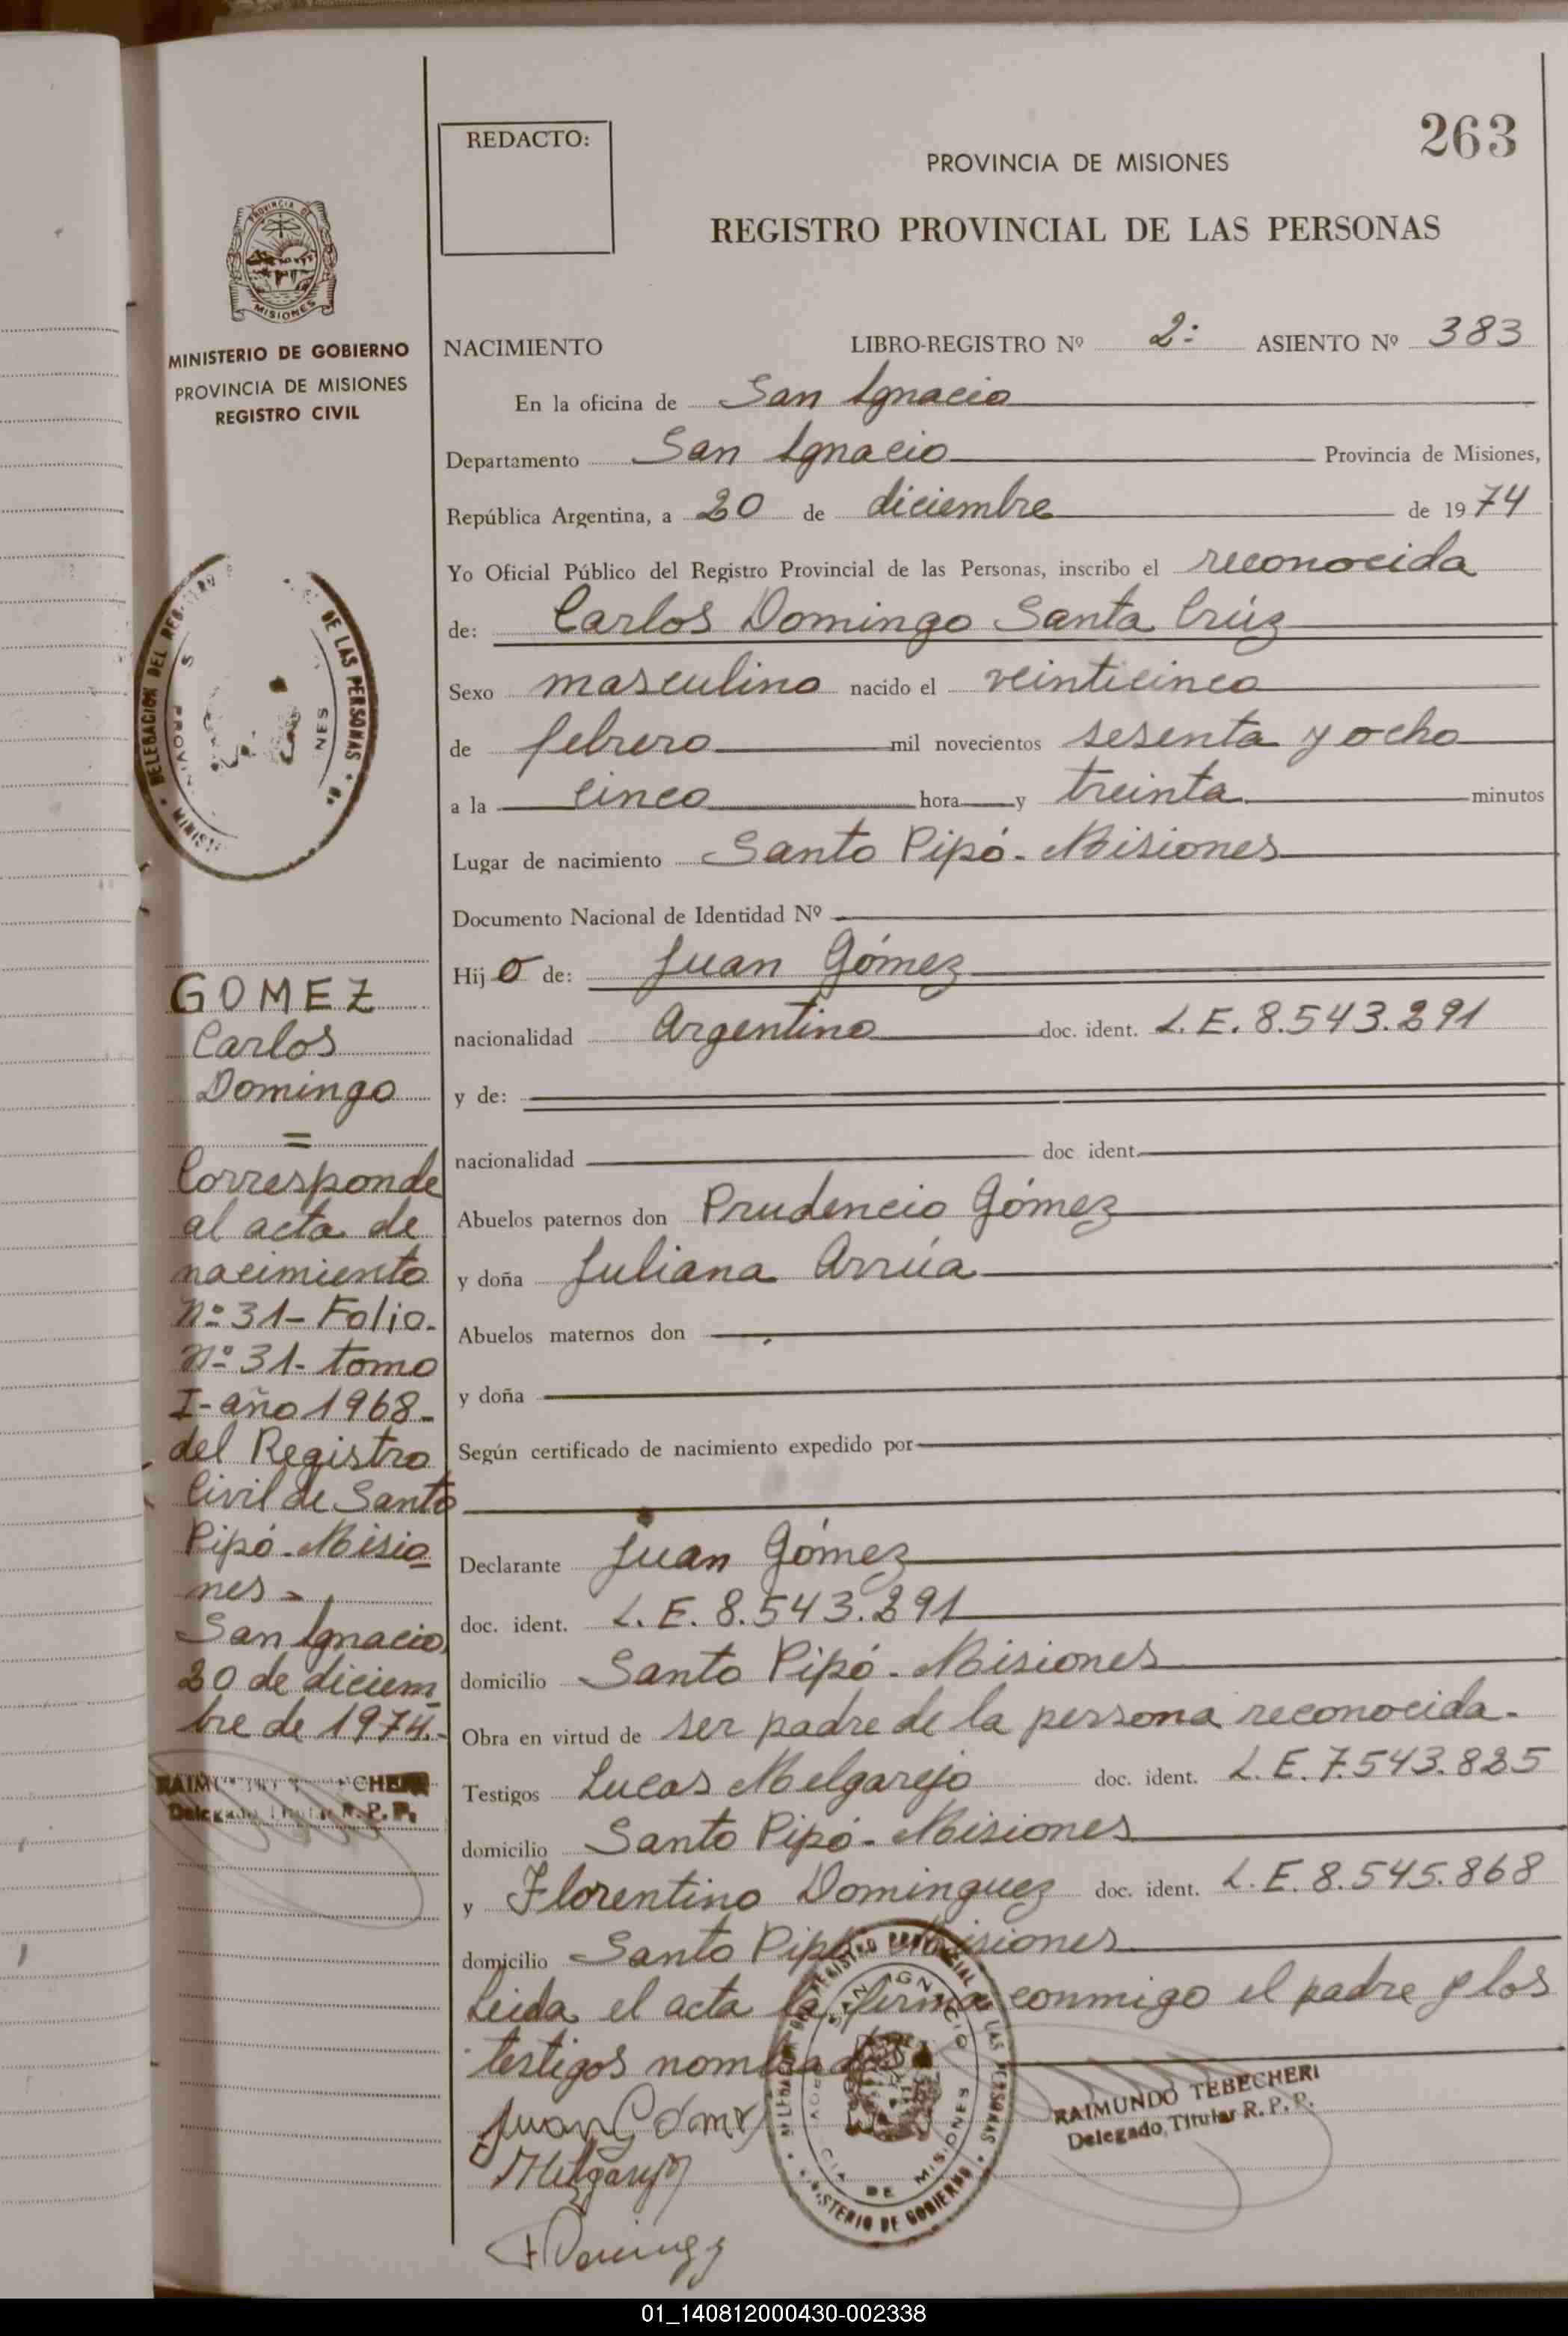 263
REDACTO:
PROVINCIA DE MISIONES
REGISTRO PROVINCIAL DE LAS PERSONAS
PROVINCIA DE
MISIONES
MINISTERIO DE GOBIERNO
PROVINCIA DE MISIONES
REGISTRO CIVIL
NACIMIENTO LIBRO-REGISTRO Nº 2º ASIENTO Nº 383
En la oficina de San Ignacio
Departamento San Ignacio Provincia de Misiones,
República Argentina, a 20 de diciembre de 1974
Yo Oficial Público del Registro Provincial de las Personas, inscribo el reconocida
de: Carlos Domingo Santa Crúz
Sexo masculino nacido el veinticinco
de febrero mil novecientos sesenta y ocho
a la cinco hora y treinta minutos
Lugar de nacimiento Santo Pipó - Misiones
Documento Nacional de Identidad Nº
Hijo de: Juan Gómez
nacionalidad Argentino doc. ident. L.E. 8.543.291
y de:
nacionalidad doc ident.
Abuelos paternos don Prudencio Gómez
y doña Juliana Arrúa
Abuelos maternos don
y doña
Según certificado de nacimiento expedido por
Declarante Juan Gómez
doc. ident. L.E. 8.543.291
domicilio Santo Pipó - Misiones
Obra en virtud de ser padre de la persona reconocida.
Testigos Lucas Melgarejo doc. ident. L.E. 7.543.825
domicilio Santo Pipó - Misiones
y Florentino Dominguez doc. ident. L.E. 8.545.868
domicilio Santo Pipó - Misiones
Leida el acta la firma conmigo el padre y los
testigos nombrados
Juan Gómez
Melgarejo
RAIMUNDO TEBECHERI
Delegado Titular R. P. P.
DELEGACION DEL REGISTRO PROVINCIAL DE LAS PERSONAS
SAN IGNACIO
PROVINCIA DE MISIONES
MINISTERIO DE GOBIERNO
DELEGACION DEL REGISTRO DE LAS PERSONAS
GOMEZ
Carlos
Domingo
=
Corresponde
al acta de
nacimiento
Nº 31 - Folio.
Nº 31 - tomo
I - año 1968 -
del Registro
Civil de Santo
Pipó - Misio
nes -
San Ignacio
20 de diciem
bre de 1974.-
Delegado Titular R. P. P.
01_140812000430-002338